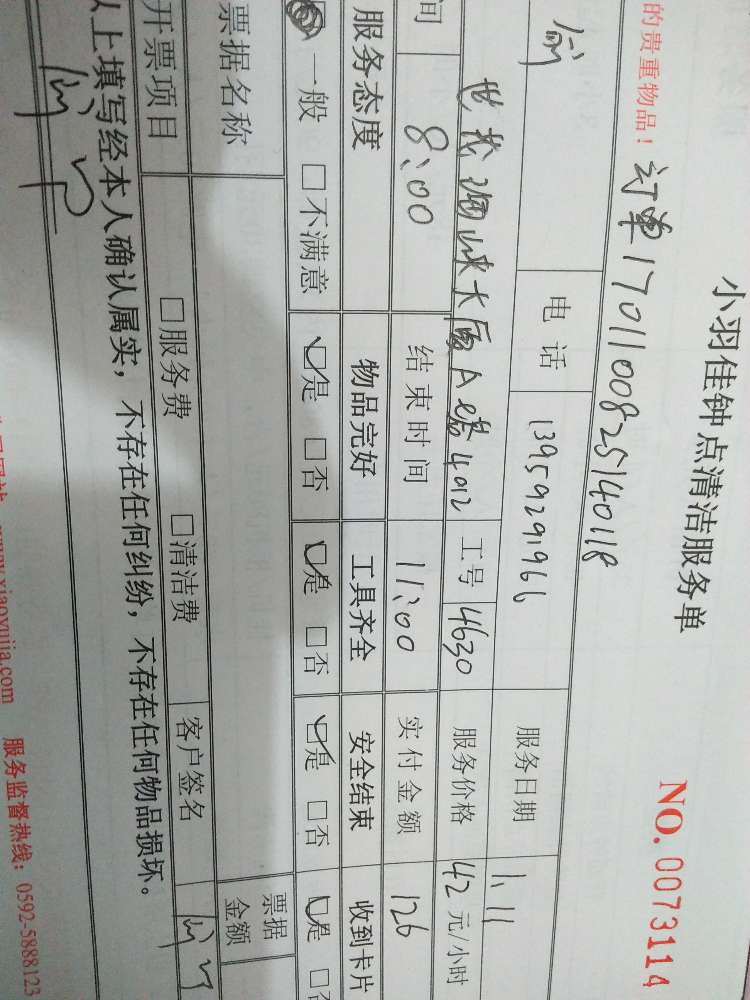 小羽佳钟点清洁服务单
NO. 0073114
的贵重物品！ 订单1701100825140118
电话 13959291966 服务日期 1.11
大厦A 4012 工号 4630 服务价格 42元/小时
间 8:00 结束时间 11:00 实付金额 126
服务态度 物品完好 工具齐全 安全结束 收到卡片
一般 □不满意 □是 □否 □是 □否 □是 □否 □是 □否
票据名称 票据金额
开票项目 □服务费 □清洁费 客户签名
以上填写经本人确认属实，不存在任何纠纷，不存在任何物品损坏。
www.xiaoyujia.com 服务监督热线：0592-5888123